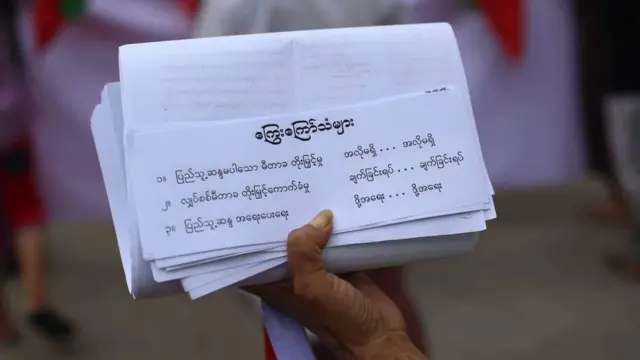 ကြွေးကြော်သံများ
၁။ ပြည်သူ့ဆန္ဒမပါသော မီတာခ တိုးမြှင့်မှု အလိုမရှိ ... အလိုမရှိ
၂။ လျှပ်စစ်မီတာခ တိုးမြှင့်ကောက်ခံမှု ချက်ခြင်းရပ် ... ချက်ခြင်းရပ်
၃။ ပြည်သူ့ဆန္ဒ အရေးပေးရေး ဒို့အရေး ... ဒို့အရေး